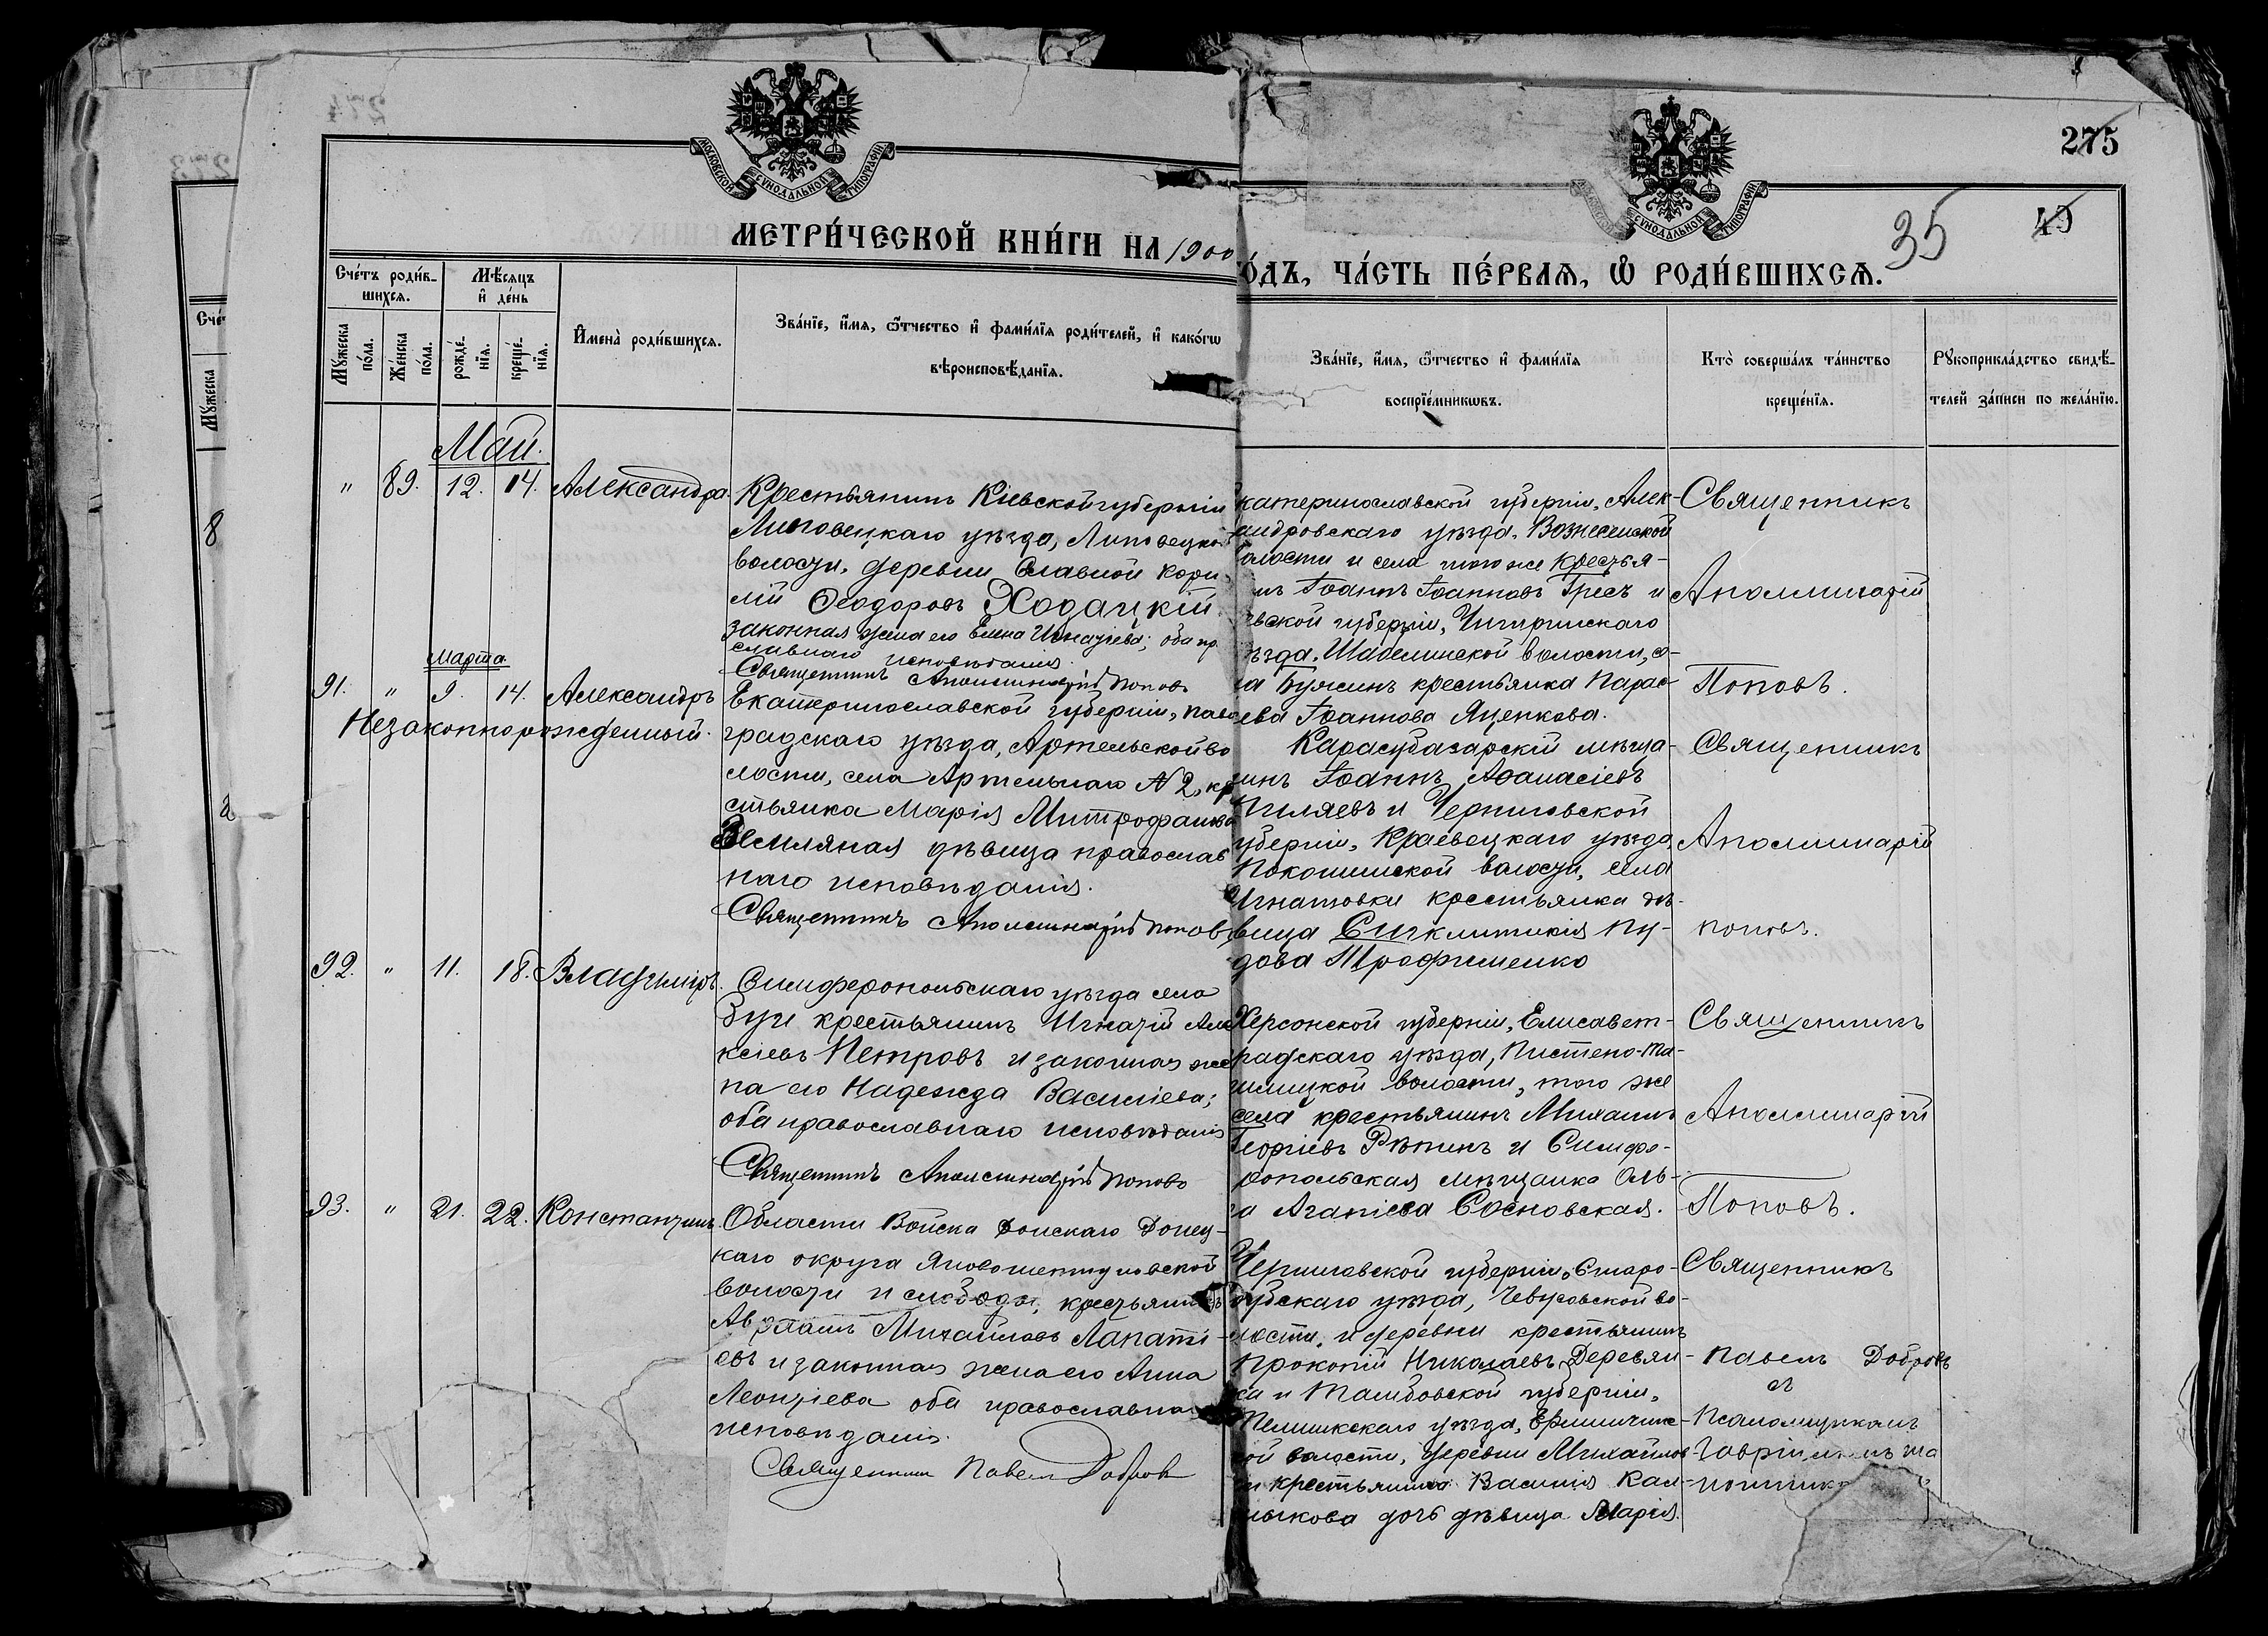 274
275
35
49
МОСКОВСКОЙ СѴНОДАЛЬНОЙ ТИПОГРАФІИ
СѴНОДАЛЬНОЙ ТИПОГРАФІИ
МЕТРИ́ЧЕСКОЙ КНИ́ГИ НА 1900
О́ДЪ, ЧА́СТЬ ПЕ́РВАѦ, Ѽ РОДИ́ВШИХСѦ.
Сче́тъ роди́в-
шихсѧ.
Мѣ́сяцъ
и҆ де́нь
Мꙋ́жеска
по́ла.
Же́нска
по́ла.
рожде́-
нїѧ.
креще́-
нїѧ.
И҆мена̀ роди́вшихсѧ.
Зва́нїе, и҆́мѧ, ѻ҆́тчество и҆ фами́лїѧ роди́телей, и҆ како́гѡ
вѣроисповѣ́данїѧ.
Зва́нїе, и҆́мѧ, ѻ҆́тчество и҆ фами́лїѧ
воспрїе́мникѡвъ.
Кто̀ соверша́лъ та́инство
креще́нїѧ.
Рꙋкоприкла́дство свидѣ́-
телей за́писи по жела́нїю.
Сче́т
Мꙋ́жеска
8
Май.
" 89. 12. 14. Александра.
Крестьянинъ Кіевской губерніи
Липовецкаго уѣзда, Липовецкой
волости, деревни Славной Корн
лій Ѳеодоровъ Ходацкій
законная жена его Елена Игнатіева; оба пр.
славнаго исповѣданія.
Священникъ Аполлинарій Поповъ
катеринославской губерніи, Алек-
андровскаго уѣзда, Вознесенской
олости и села того же крестья-
нъ Іоаннъ Іоанновъ Гресь и
евской губерніи, Чигиринскаго
ѣзда, Шабелинской волости, с-
а Бужинъ крестьянка Парас-
ева Іоаннова Яценкова.
Священникъ
Аполлинарій
Поповъ.
марта
91. " 9. 14. Александръ
Незаконнорожденный.
Екатеринославской губерніи, Павло
градскаго уѣзда, Артельской во
лости, села Артельнаго № 2, кр
стьянка Марія Митрофанова
Земляная дѣвица православ
наго исповѣданія.
Священникъ Аполлинарій Поповъ
Карасубазарскій мѣща-
инъ Іоаннъ Аѳанасіевъ
Пиляевъ и Черниговской
уберніи, Кралевецкаго уѣзда
Покошинской волости, села
Игнатовки крестьянка дѣ-
вица Синклитикія Пу-
дова Трофименко
Священникъ
Аполлинарій
Поповъ.
92. " 11. 18. Владиміръ.
Симферопольскаго уѣзда села
Зуи крестьянинъ Игнатій Але
ксіевъ Петровъ и законная же
на его Надежда Василіева;
оба православнаго исповѣданія
Священникъ Аполлинарій Поповъ
Херсонской губерніи, Елисавет-
градскаго уѣзда, Пистено-Та-
шлицкой волости, того же
села крестьянинъ Михаилъ
Георгіевъ Рѣпинъ и Симфе-
ропольская мѣщанка Оль-
га Агапіева Сосновская.
Священникъ
Аполлинарій
Поповъ.
93. " 21. 22. Константинъ.
Области Войска Донскаго Донец-
каго округа
волости и слободы, крестьянинъ
Михайловъ Лапати-
евъ и законная жена его Анна
Леонтіева оба православна
исповѣданія.
Священникъ Павелъ Добровъ
Черниговской губерніи, Старо-
дубскаго уѣзда, волости
лости и деревни крестьянинъ
Прокопій Николаевъ Деревян-
ка и Тамбовской губерніи,
уѣзда,
кой волости, деревни Михайлов
ки крестьянина Василія Кал-
мыкова дочь дѣвица Марія.
Священникъ
Павелъ Добровъ
съ
Псаломщикомъ